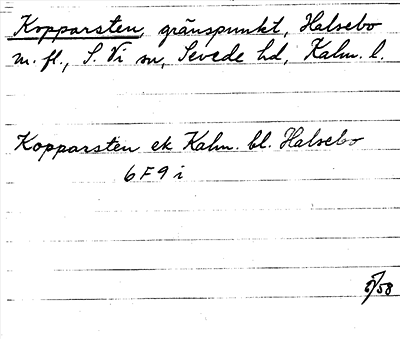 Kopparsten, gränspunkt, Halsebo
m. fl., S. Vi sn, Sevede hd, Kalm. l.
Kopparsten ek Kalm. bl. Halsebo
6F9i
/58